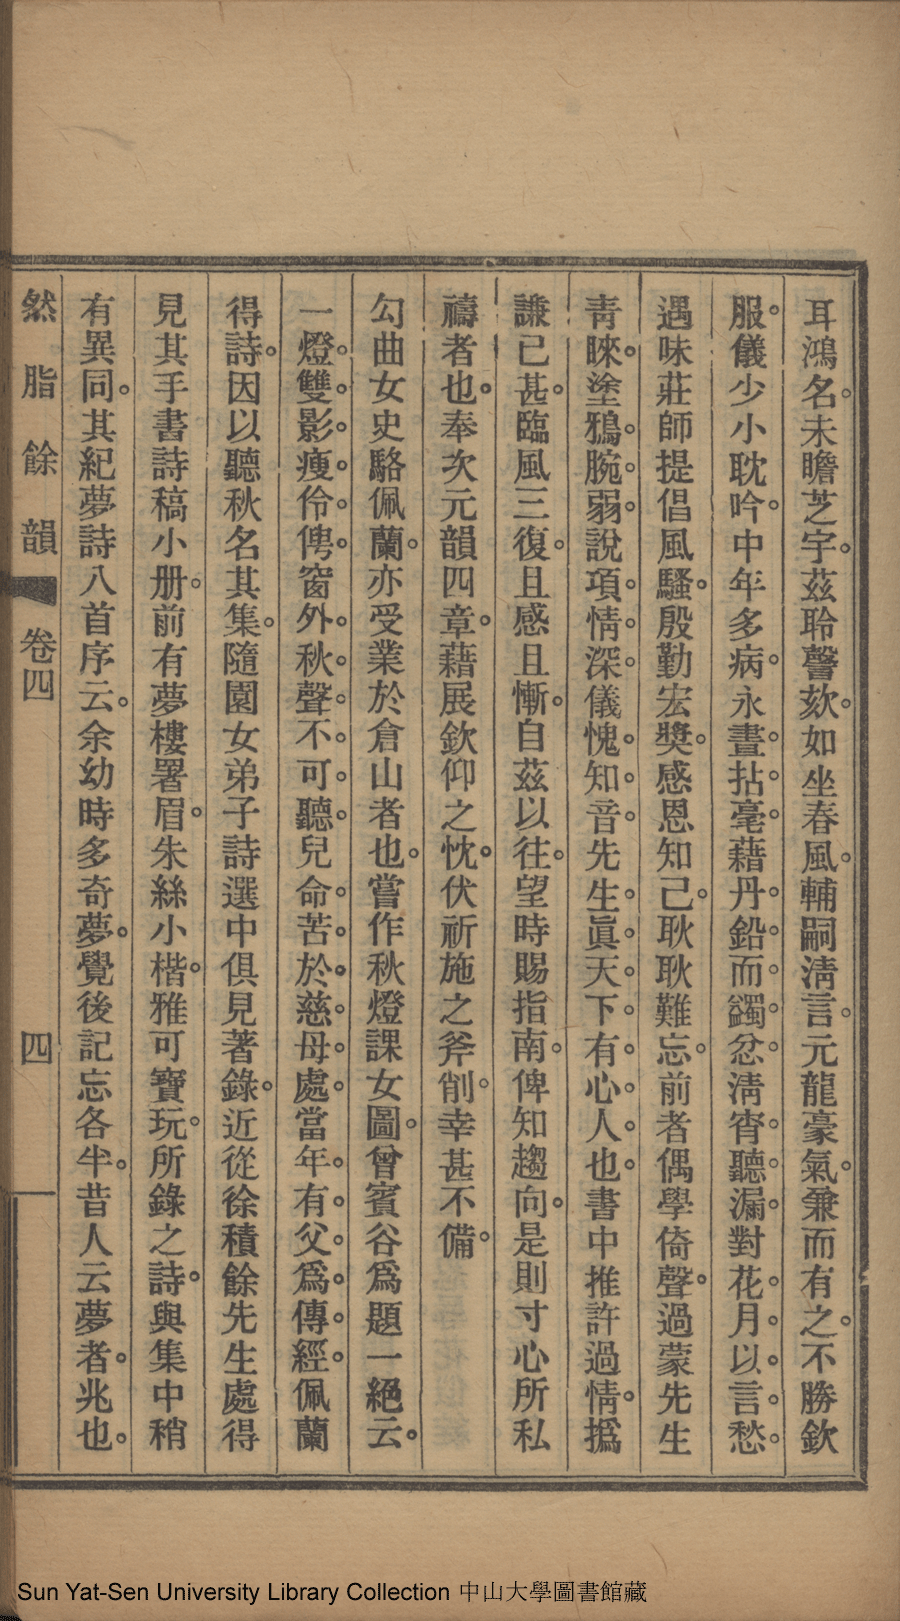 耳鴻名。未瞻芝宇。茲聆謦欬。如坐春風。輔嗣淸言。元龍豪氣。兼而有之。不勝欽
服。儀少小耽吟。中年多病。永晝拈毫。藉丹鉛而蠲忿。淸宵聽漏。對花月以言愁。
遇味莊師提倡風騷。殷勤宏奬。感恩知己。耿耿難忘。前者偶學倚聲。過蒙先生
靑睞。塗鴉腕弱。說項情深。儀愧知音。先生眞天下有心人也。書中推許過情。撝
謙已甚。臨風三復。且感且慚。自茲以往。望時賜指南。俾知趨向。是則寸心所私
禱者也。奉次元韻四章。藉展欽仰之忱。伏祈施之斧削。幸甚不備。
勾曲女史駱佩蘭。亦受業於倉山者也。嘗作秋燈課女圖。曾賓谷爲題一絕云。
一燈雙影瘦伶俜。窗外秋聲不可聽。兒命苦於慈母處。當年有父爲傳經。佩蘭
得詩。因以聽秋名其集。隨園女弟子詩選中俱見著錄。近從徐積餘先生處得
見其手書詩稿小册。前有夢樓署眉。朱絲小楷。雅可寶玩。所錄之詩。與集中稍
有異同。其紀夢詩八首序云。余幼時多奇夢。覺後記忘各半。昔人云夢者。兆也。
然脂餘韻
卷四
四
Sun Yat-Sen University Library Collection 中山大學圖書館藏